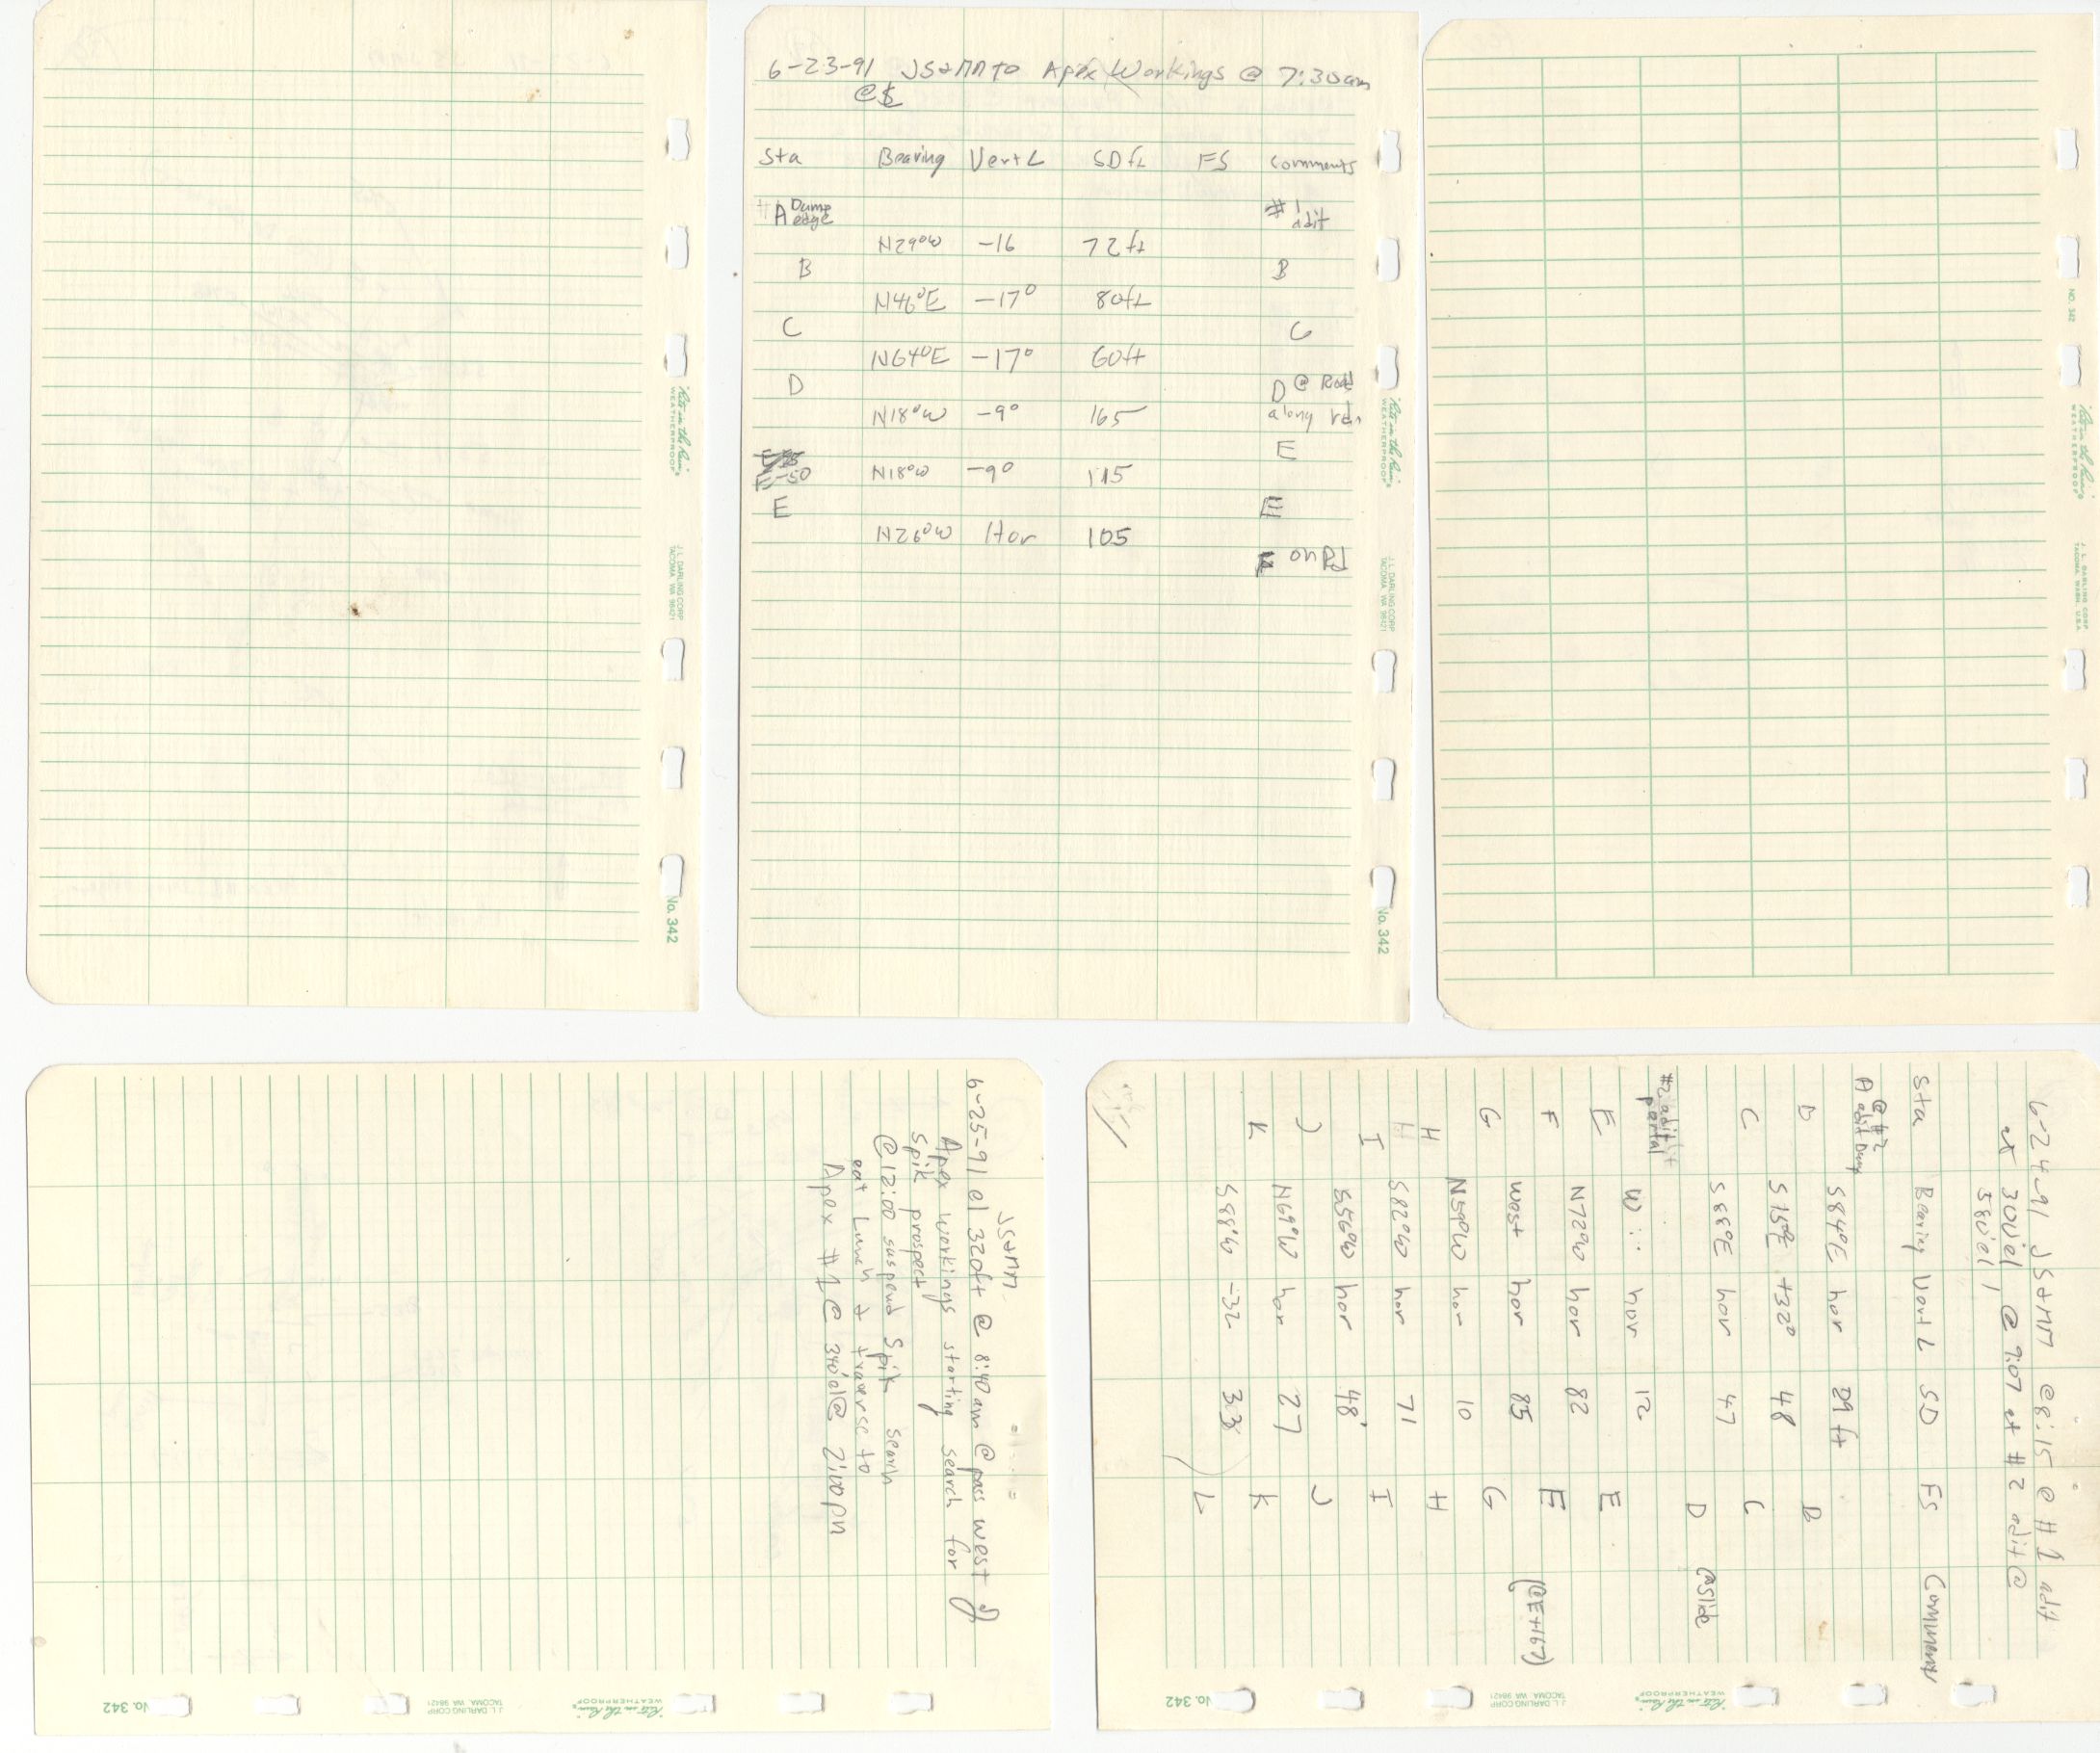 6-23-91 JS+MM to Apex Workings @ 7:30am
Sta Bearing Vert L SD ft FS Comments
A Dump edge #1 adit
N29°W -16 72 ft
B B
N46°E -17° 80ft
C C
N64°E -17° 60ft
D D @ Road
N18°W -9° 165 along
E
N18°W -9° 115
E E
N26°W Hor 105
Rite in the Rain
WEATHERPROOF
J.L. DARLING CORP
TACOMA, WA 98421
No. 342
Rite in the Rain
WEATHERPROOF
J.L. DARLING CORP
TACOMA, WA 98421
No. 342
NO. 342
Rite in the Rain
WEATHERPROOF
J. L. DARLING CORP
TACOMA, WASH. U.S.A.
JS+MM
6-25-91 el 320ft @ 8:40am @ pass west of
Apex workings starting search for
Spik prospect
@ 12:00 suspend Spik search
eat Lunch & traverse to
Apex #1 @ 340'el @ 2:00pm
Rite in the Rain
WEATHERPROOF
J.L. DARLING CORP
TACOMA, WA 98421
No. 342
6-24-91 JS+MM @8:15 @ #1 adit
at @ 9:07 at #2 adit @
580'el
Sta Bearing Vert L SD FS Comments
A @ #2 adit Dump
S84°E hor 29 ft
B B
S15°E +32° 48
C C
S88°E hor 47
D @slide
#2 adit portal
W hor 12
E E
N72°W hor 82
F F (@E+167)
West hor 85
G G
N59°W hor 10
H H
S82°W hor 71
I I
S56°W hor 48'
J J
N69°W hor 27
K K
S88°W -32 33
L
Rite in the Rain
WEATHERPROOF
J.L. DARLING CORP
TACOMA, WA 98421
No. 342